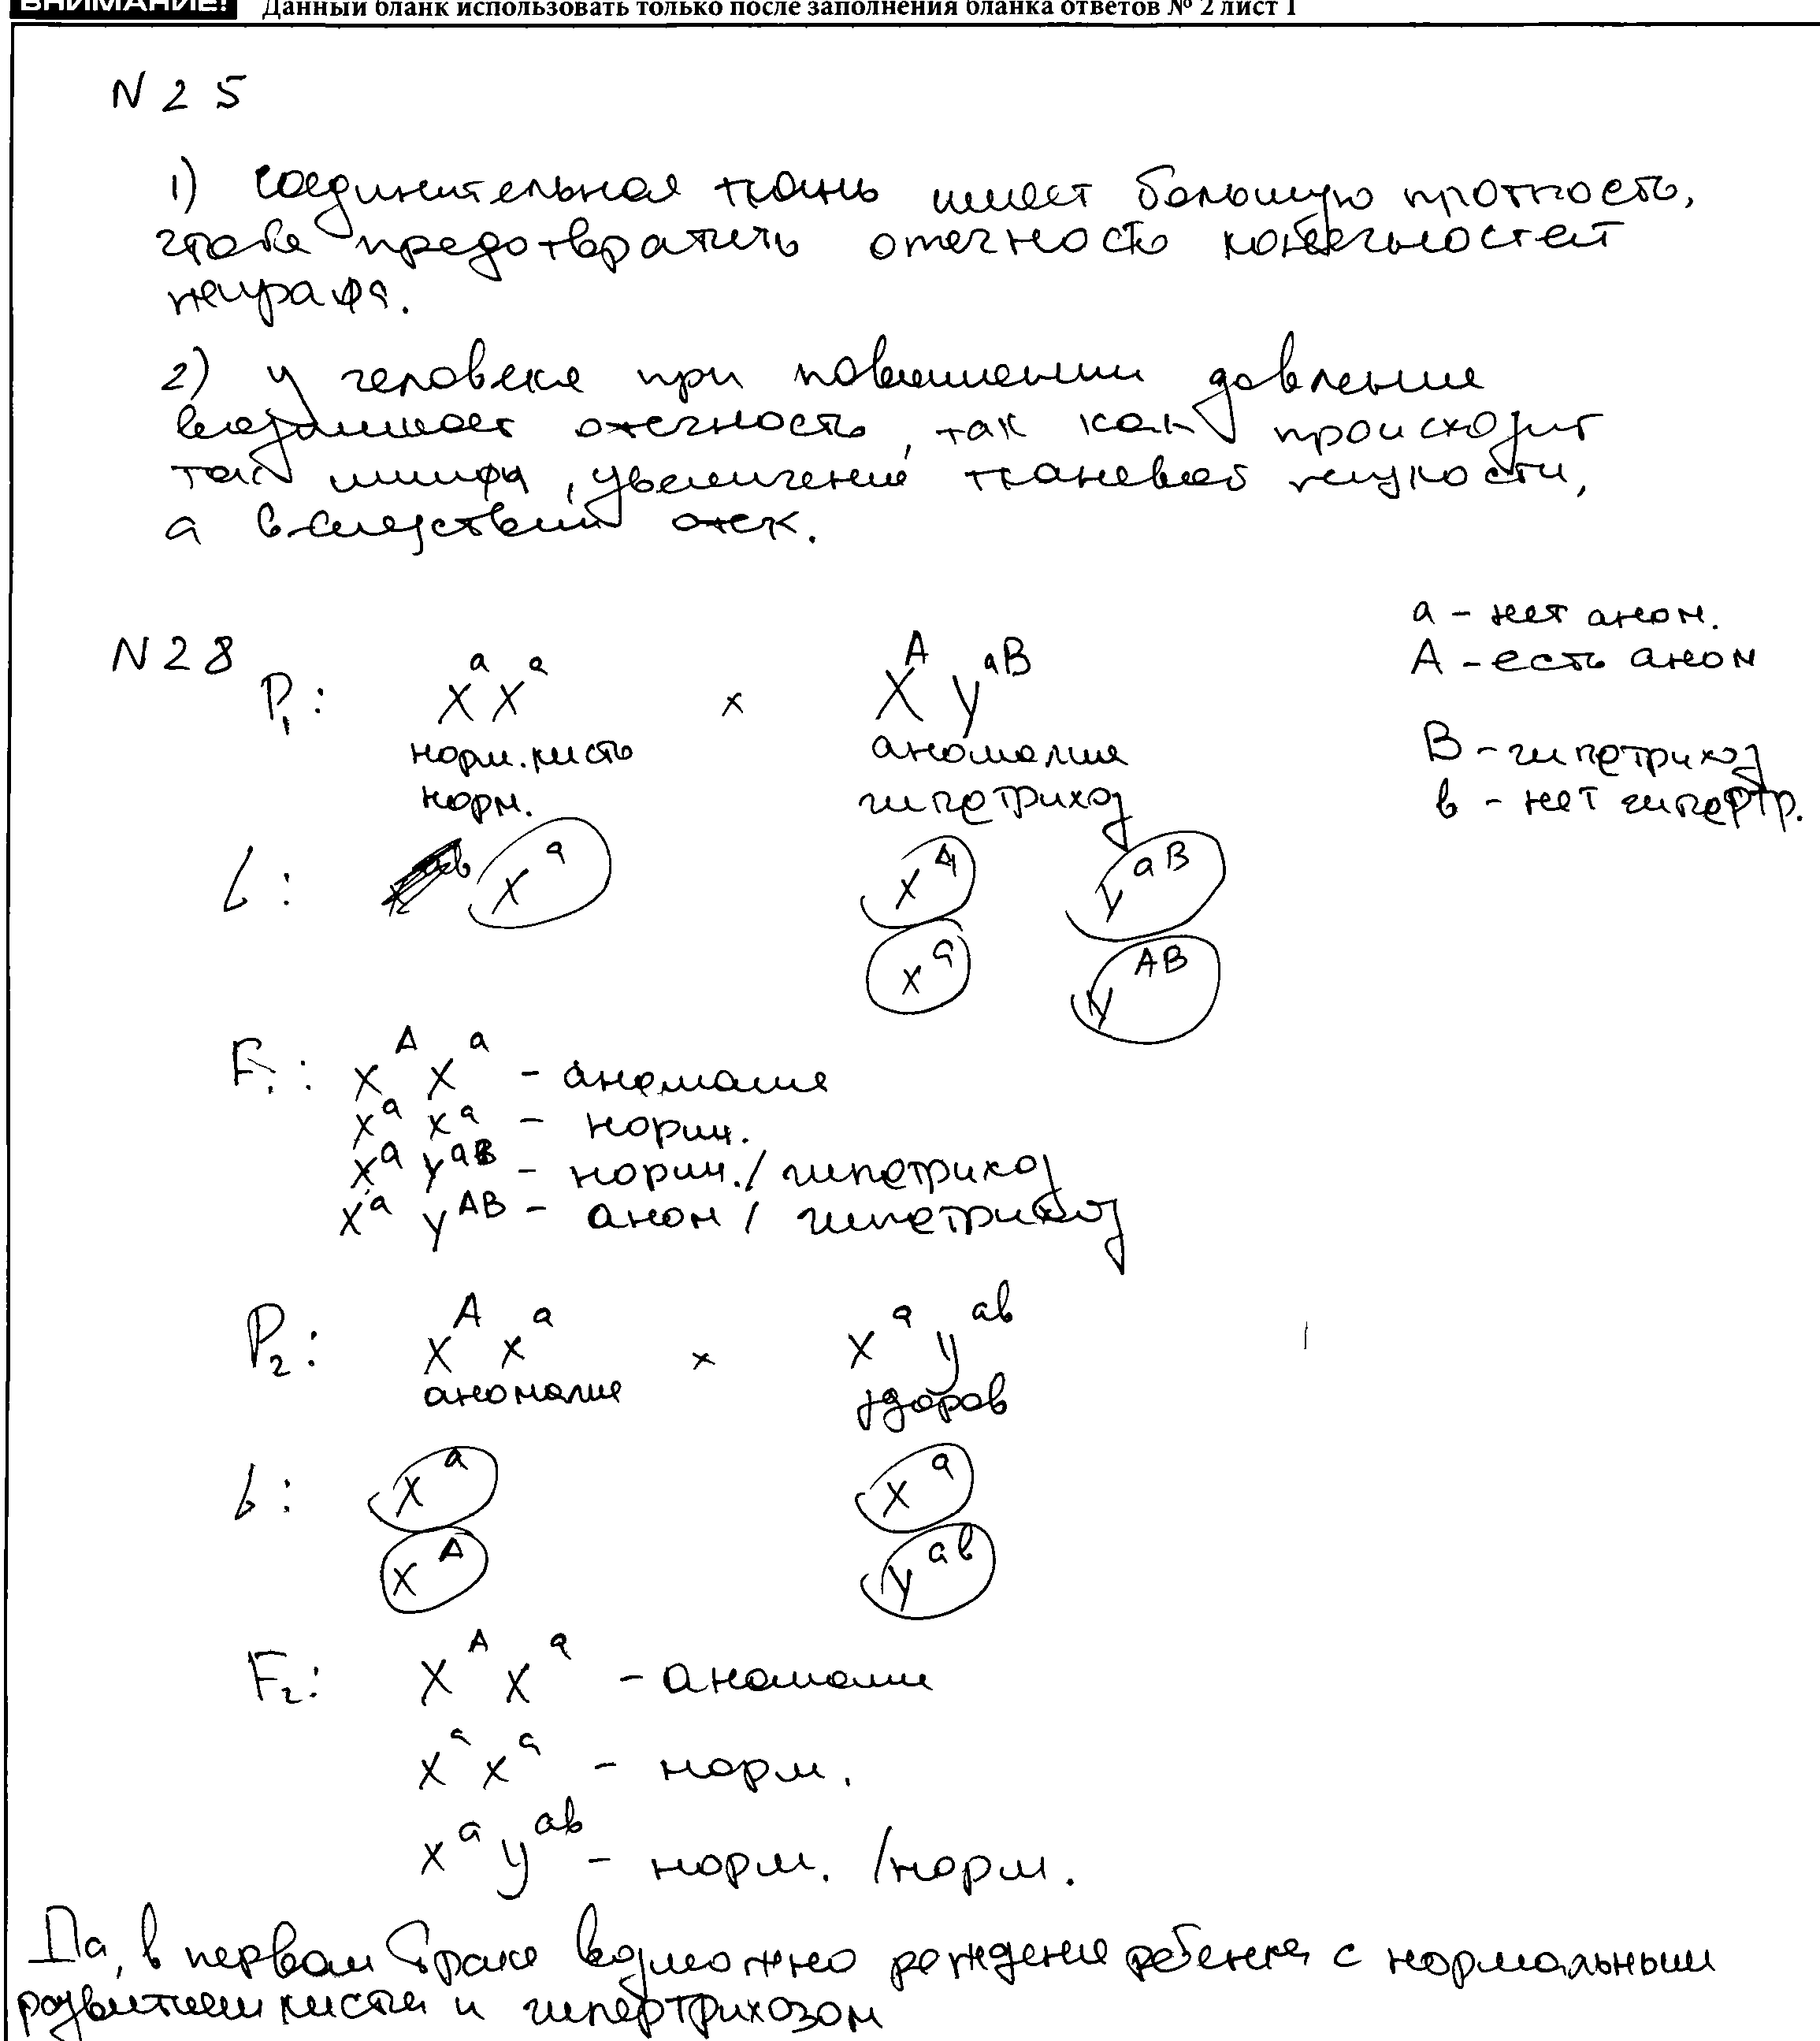 ВНИМАНИЕ! Данный бланк использовать только после заполнения бланка ответов № 2 лист 1
N 25
1) Соединительная ткань имеет большую плотность,
чтобы предотвратить отечность конечностей
жирафа.
2) у человека при повышении давления
возникает отечность, так как происходит
ток лимфы, увеличение тканевой жидкости,
а вследствии отек.
N 28
a - нет аном.
A - есть аном
B - гипетрихоз
b - нет гипертр.
P₁: XᵃXᵃ x Xᴬ Yᵃᴮ
норм. кисть аномалия
норм. гипетрихоз
G: Xᵃ Xᴬ Yᵃᴮ
Xᵃ Yᴬᴮ
F₁: Xᴬ Xᵃ - аномалия
Xᵃ Xᵃ - норм.
Xᵃ Yᵃᴮ - норм. / гипетрихоз
Xᵃ Yᴬᴮ - аном / гипетрихоз
P₂: Xᴬ Xᵃ x Xᵃ Yᵃᵇ
аномалия здоров
G: Xᵃ Xᵃ
Xᴬ Yᵃᵇ
F₂: Xᴬ Xᵃ - аномалия
Xᵃ Xᵃ - норм.
Xᵃ Yᵃᵇ - норм. /норм.
Да, в первом браке возможно рождение ребенка с нормальным
развитием кисти и гипертрихозом